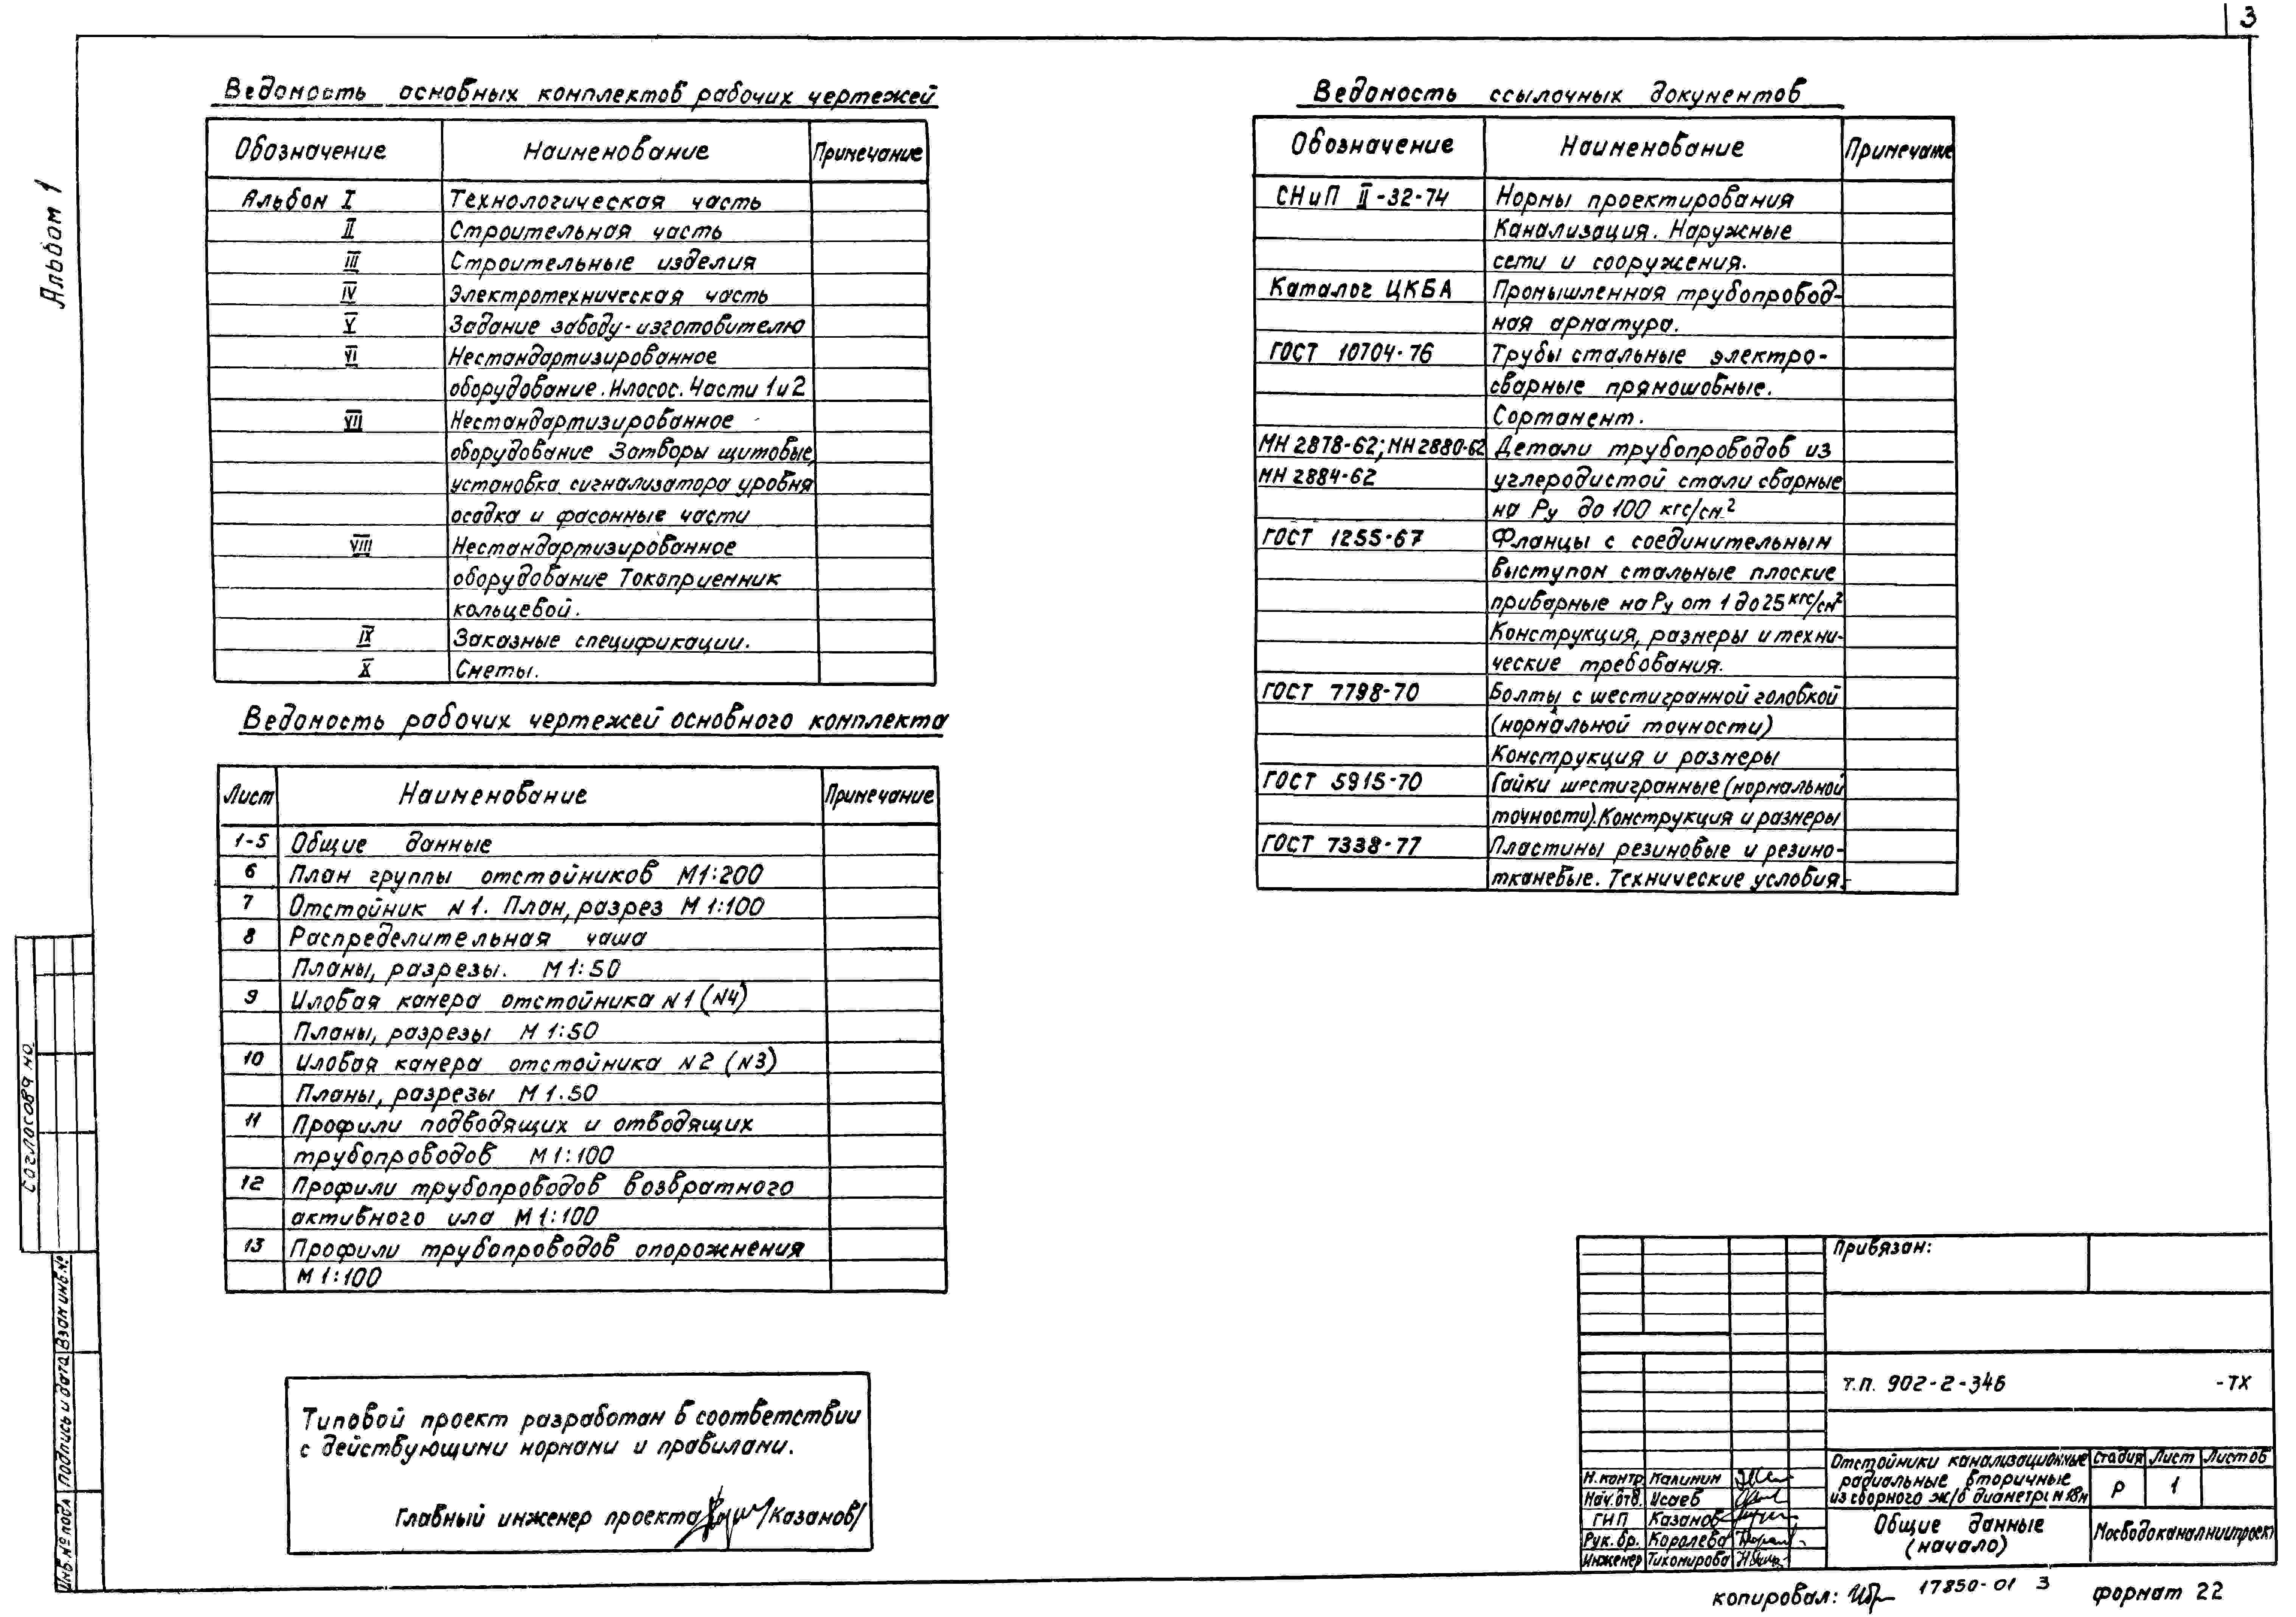 3
Альбом 1
Ведомость основных комплектов рабочих чертежей
Обозначение Наименование Примечание
Альбом I Технологическая часть
II Строительная часть
III Строительные изделия
IV Электротехническая часть
V Задание заводу-изготовителю
VI Нестандартизированное
оборудование. Илосос. Части 1 и 2
VII Нестандартизированное
оборудование Затворы щитовые,
установка сигнализатора уровня
осадка и фасонные части
VIII Нестандартизированное
оборудование Токоприемник
кольцевой.
IX Заказные спецификации.
X Сметы.
Ведомость рабочих чертежей основного комплекта
Лист Наименование Примечание
1-5 Общие данные
6 План группы отстойников М1:200
7 Отстойник N1. План, разрез М 1:100
8 Распределительная чаша
Планы, разрезы. М 1:50
9 Иловая камера отстойника N1 (N4)
Планы, разрезы М 1:50
10 Иловая камера отстойника N2 (N3)
Планы, разрезы М 1.50
11 Профили подводящих и отводящих
трубопроводов М1:100
12 Профили трубопроводов возвратного
активного ила М 1:100
13 Профили трубопроводов опорожнения
М 1:100
Типовой проект разработан в соответствии
с действующими нормами и правилами.
Главный инженер проекта /Казанов/
Ведомость ссылочных документов
Обозначение Наименование Примечание
СНиП II-32-74 Нормы проектирования
Канализация. Наружные
сети и сооружения.
Каталог ЦКБА Промышленная трубопровод-
ная арматура.
ГОСТ 10704-76 Трубы стальные электро-
сварные прямошовные.
Сортамент.
МН 2878-62; МН 2880-62 Детали трубопроводов из
МН 2884-62 углеродистой стали сварные
на Ру до 100 кгс/см²
ГОСТ 1255-67 Фланцы с соединительным
выступом стальные плоские
приварные на Ру от 1 до 25 кгс/см²
Конструкция, размеры и техни-
ческие требования.
ГОСТ 7798-70 Болты с шестигранной головкой
(нормальной точности)
Конструкция и размеры
ГОСТ 5915-70 Гайки шестигранные (нормальной
точности). Конструкция и размеры
ГОСТ 7338-77 Пластины резиновые и резино-
тканевые. Технические условия.
Согласовано
Инв. № подл Подпись и дата Взам инв. №
Привязан:
т.п. 902-2-346 -ТХ
Отстойники канализационные
радиальные вторичные
из сборного ж/б диаметром 18м
Стадия Лист Листов
Р 1
Общие данные
(начало)
Мосводоканалниипроект
Н.контр. Калинин
Нач.отд. Исаев
ГИП Казанов
Рук. бр. Королева
Инженер Тихомирова
копировал: 17850-01 3 формат 22